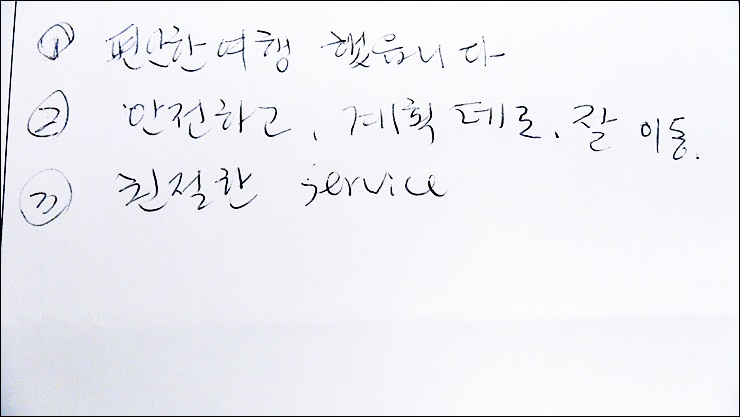 ① 편안한 여행 했읍니다
② 안전하고, 계획 데로, 잘 이동.
③ 친절한 service